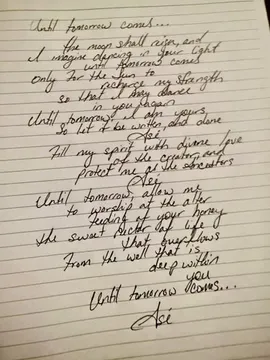 Until tomorrow comes...
The moon shall rise, and
I imagine dancing in your light
until tomorrow comes
Only for the sun to
recharge my strength
so that I may dance
in you again
Until tomorrow, I am yours
so let it be written, and done
Asé
Fill my spirit with divine love
of the creator, and
protect me of the ancestors
Asé
Until tomorrow, allow me
to worship at the alter
feeding of your honey
the sweet nectar of life
that overflows
From the well that is
deep within
you
Until tomorrow comes...
Asé